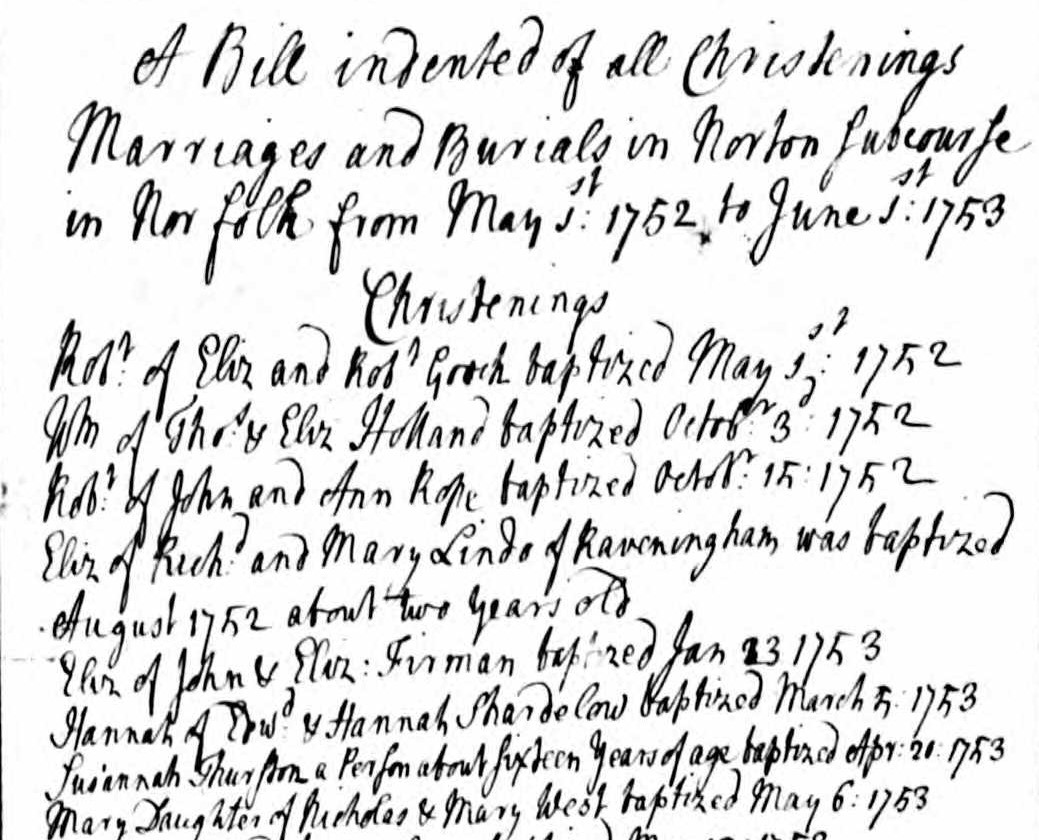 A Bill indented of all Christenings
Marriages and Burials in Norton Subcourse
in Norfolk from May 1st: 1752 to June 1st: 1753
Christenings
Robt: of Eliz and Robt Gooch baptized May 1st: 1752
Wm of Thos: & Eliz Holland baptized Octobr: 3d: 1752
Robt: of John and Ann Rope baptized Octobr: 15: 1752
Eliz of Richd: and Mary Lindo of Raveningham was baptized
August 1752 about two years old
Eliz of John & Eliz: Firman baptized Jan 23 1753
Hannah of Edwd: & Hannah Shardelow baptized March 5: 1753
Susannah Thurston a Person about sixteen Years of age baptized Apr: 20: 1753
Mary Daughter of Nicholas & Mary West baptized May 6: 1753